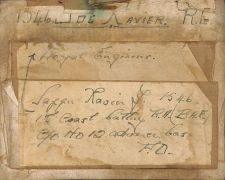 1546 JOE XAVIER. R.E.
Royal Engineers.
Sapper Xavier J. 1546.
18 Coast Battery R.A. B.A.E.
C/o No 12 Advance Bas
P.O.